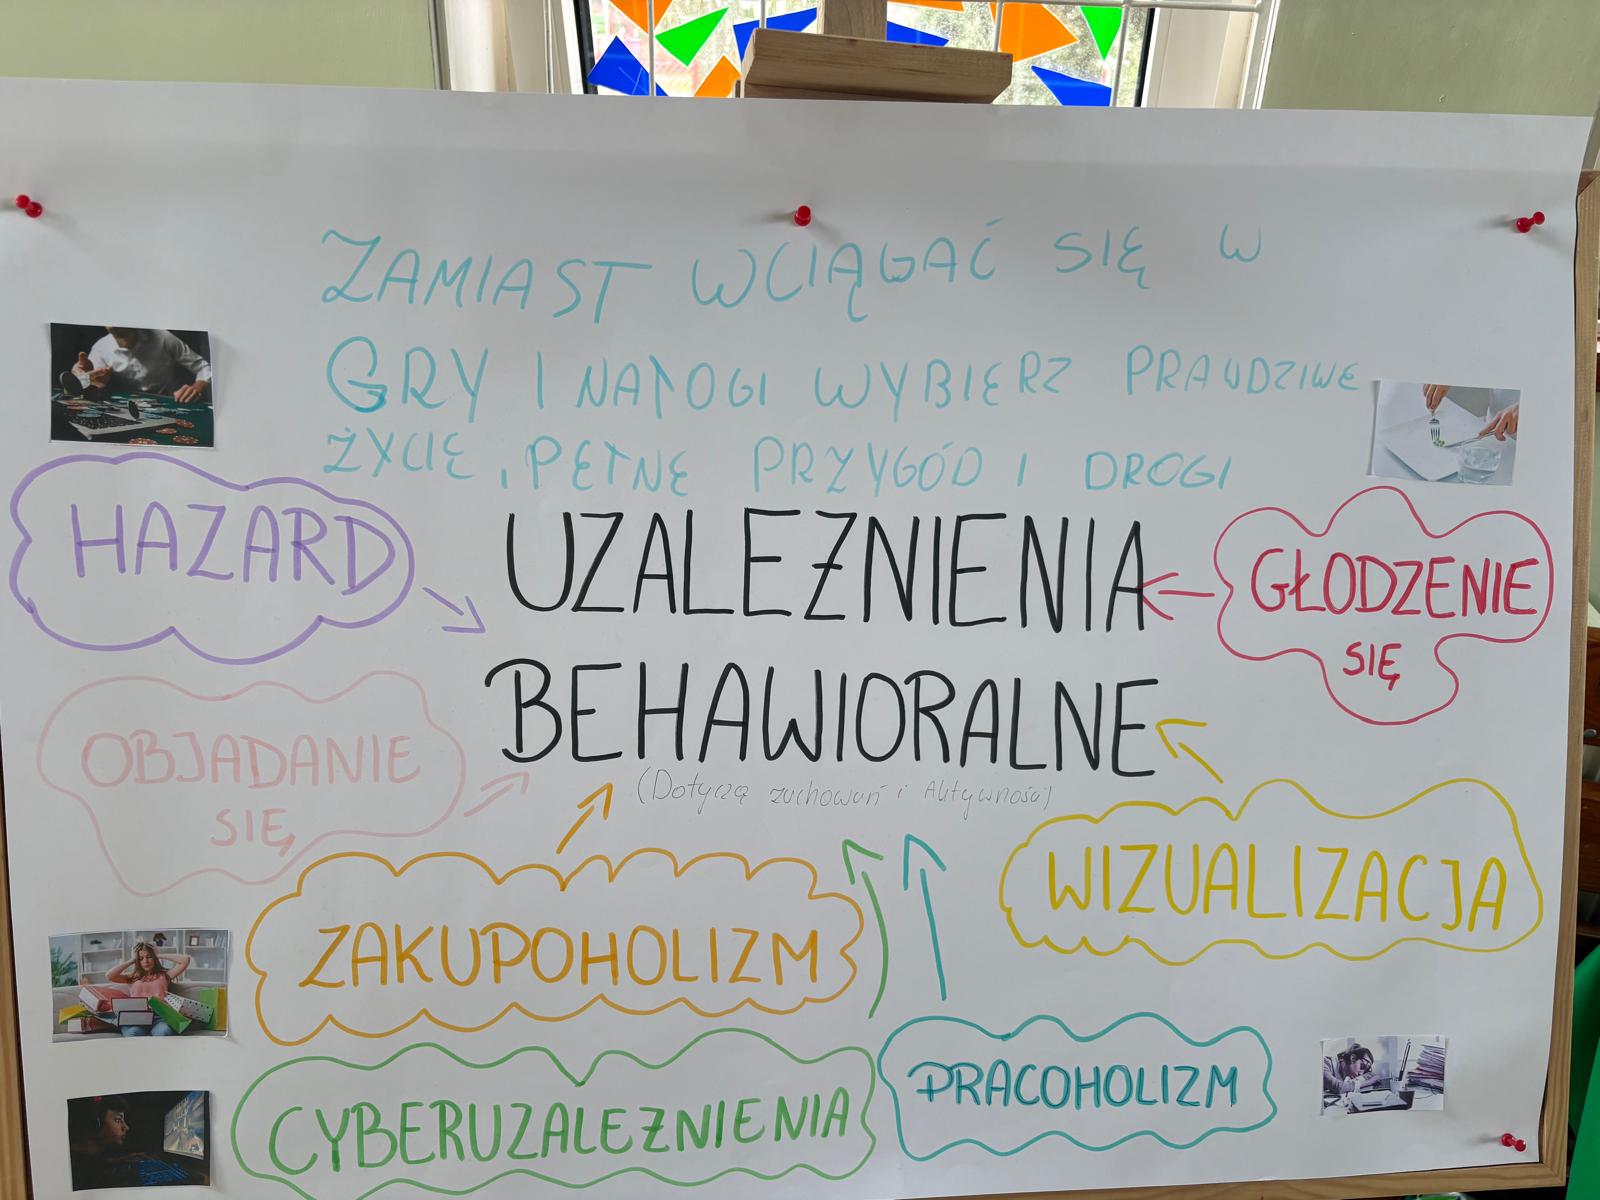 ZAMIAST WCIĄGAĆ SIĘ W
GRY I NAŁOGI WYBIERZ PRAWDZIWE
ŻYCIE, PEŁNE PRZYGÓD I DROGI
HAZARD
UZALEŻNIENIA
BEHAWIORALNE
(Dotyczą zachowań i Aktywności)
GŁODZENIE
SIĘ
OBJADANIE
SIĘ
WIZUALIZACJA
ZAKUPOHOLIZM
PRACOHOLIZM
CYBERUZALEŻNIENIA